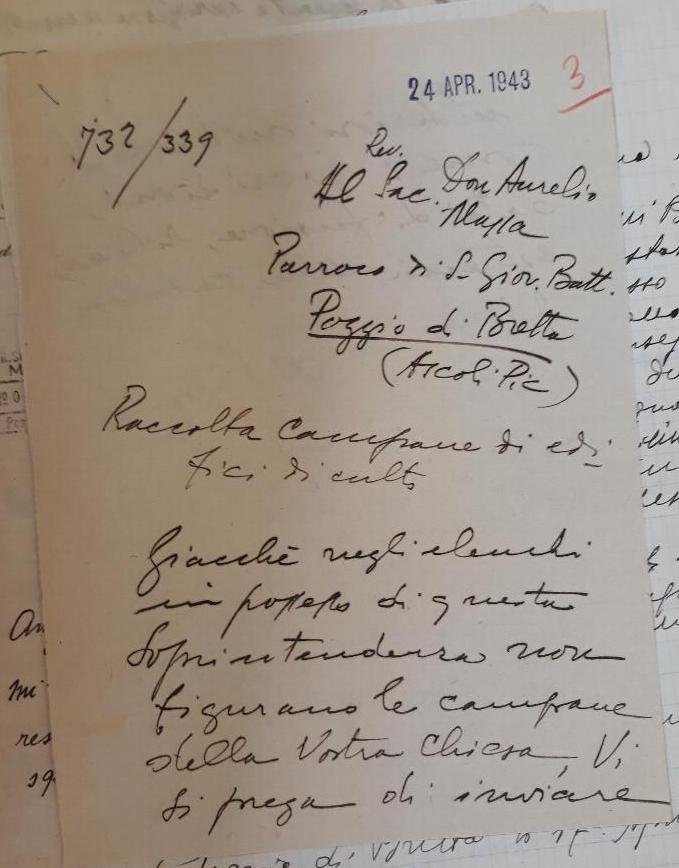 24 APR. 1943
3
732/339
Rev.
Al Sac. Don Aurelio
Massa
Parroco di S. Giov. Batt.
Poggio di Bretta
(Ascoli Pic)
Raccolta campane di edi-
fici di culto
Giacchè negli elenchi
in possesso di questa
Soprintendenza non
figurano le campane
della Vostra Chiesa, Vi
si prega di inviare